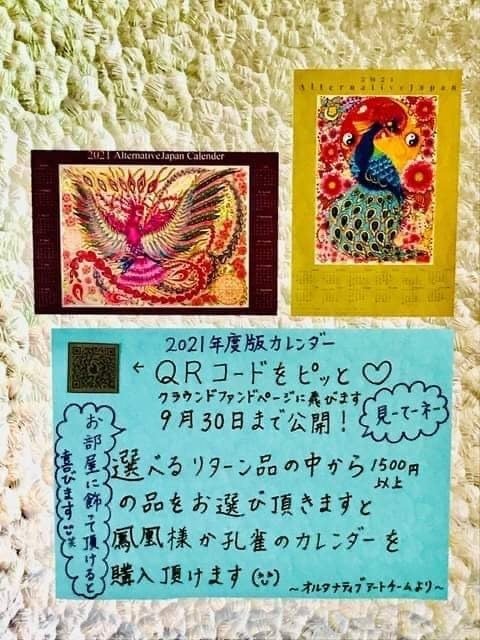 2021 AlternativeJapan Calender
2021
AlternativeJapan
2021年度版カレンダー
←QRコードをピッと♡
クラウンドファンドページに飛びます
9月30日まで公開！
見てーネー
お部屋に飾って頂けると
喜びます
選べるリターン品の中から1500円
以上
の品をお選び頂きますと
鳳凰様か孔雀のカレンダーを
購入頂けます
〜オルタナティブアートチームより〜